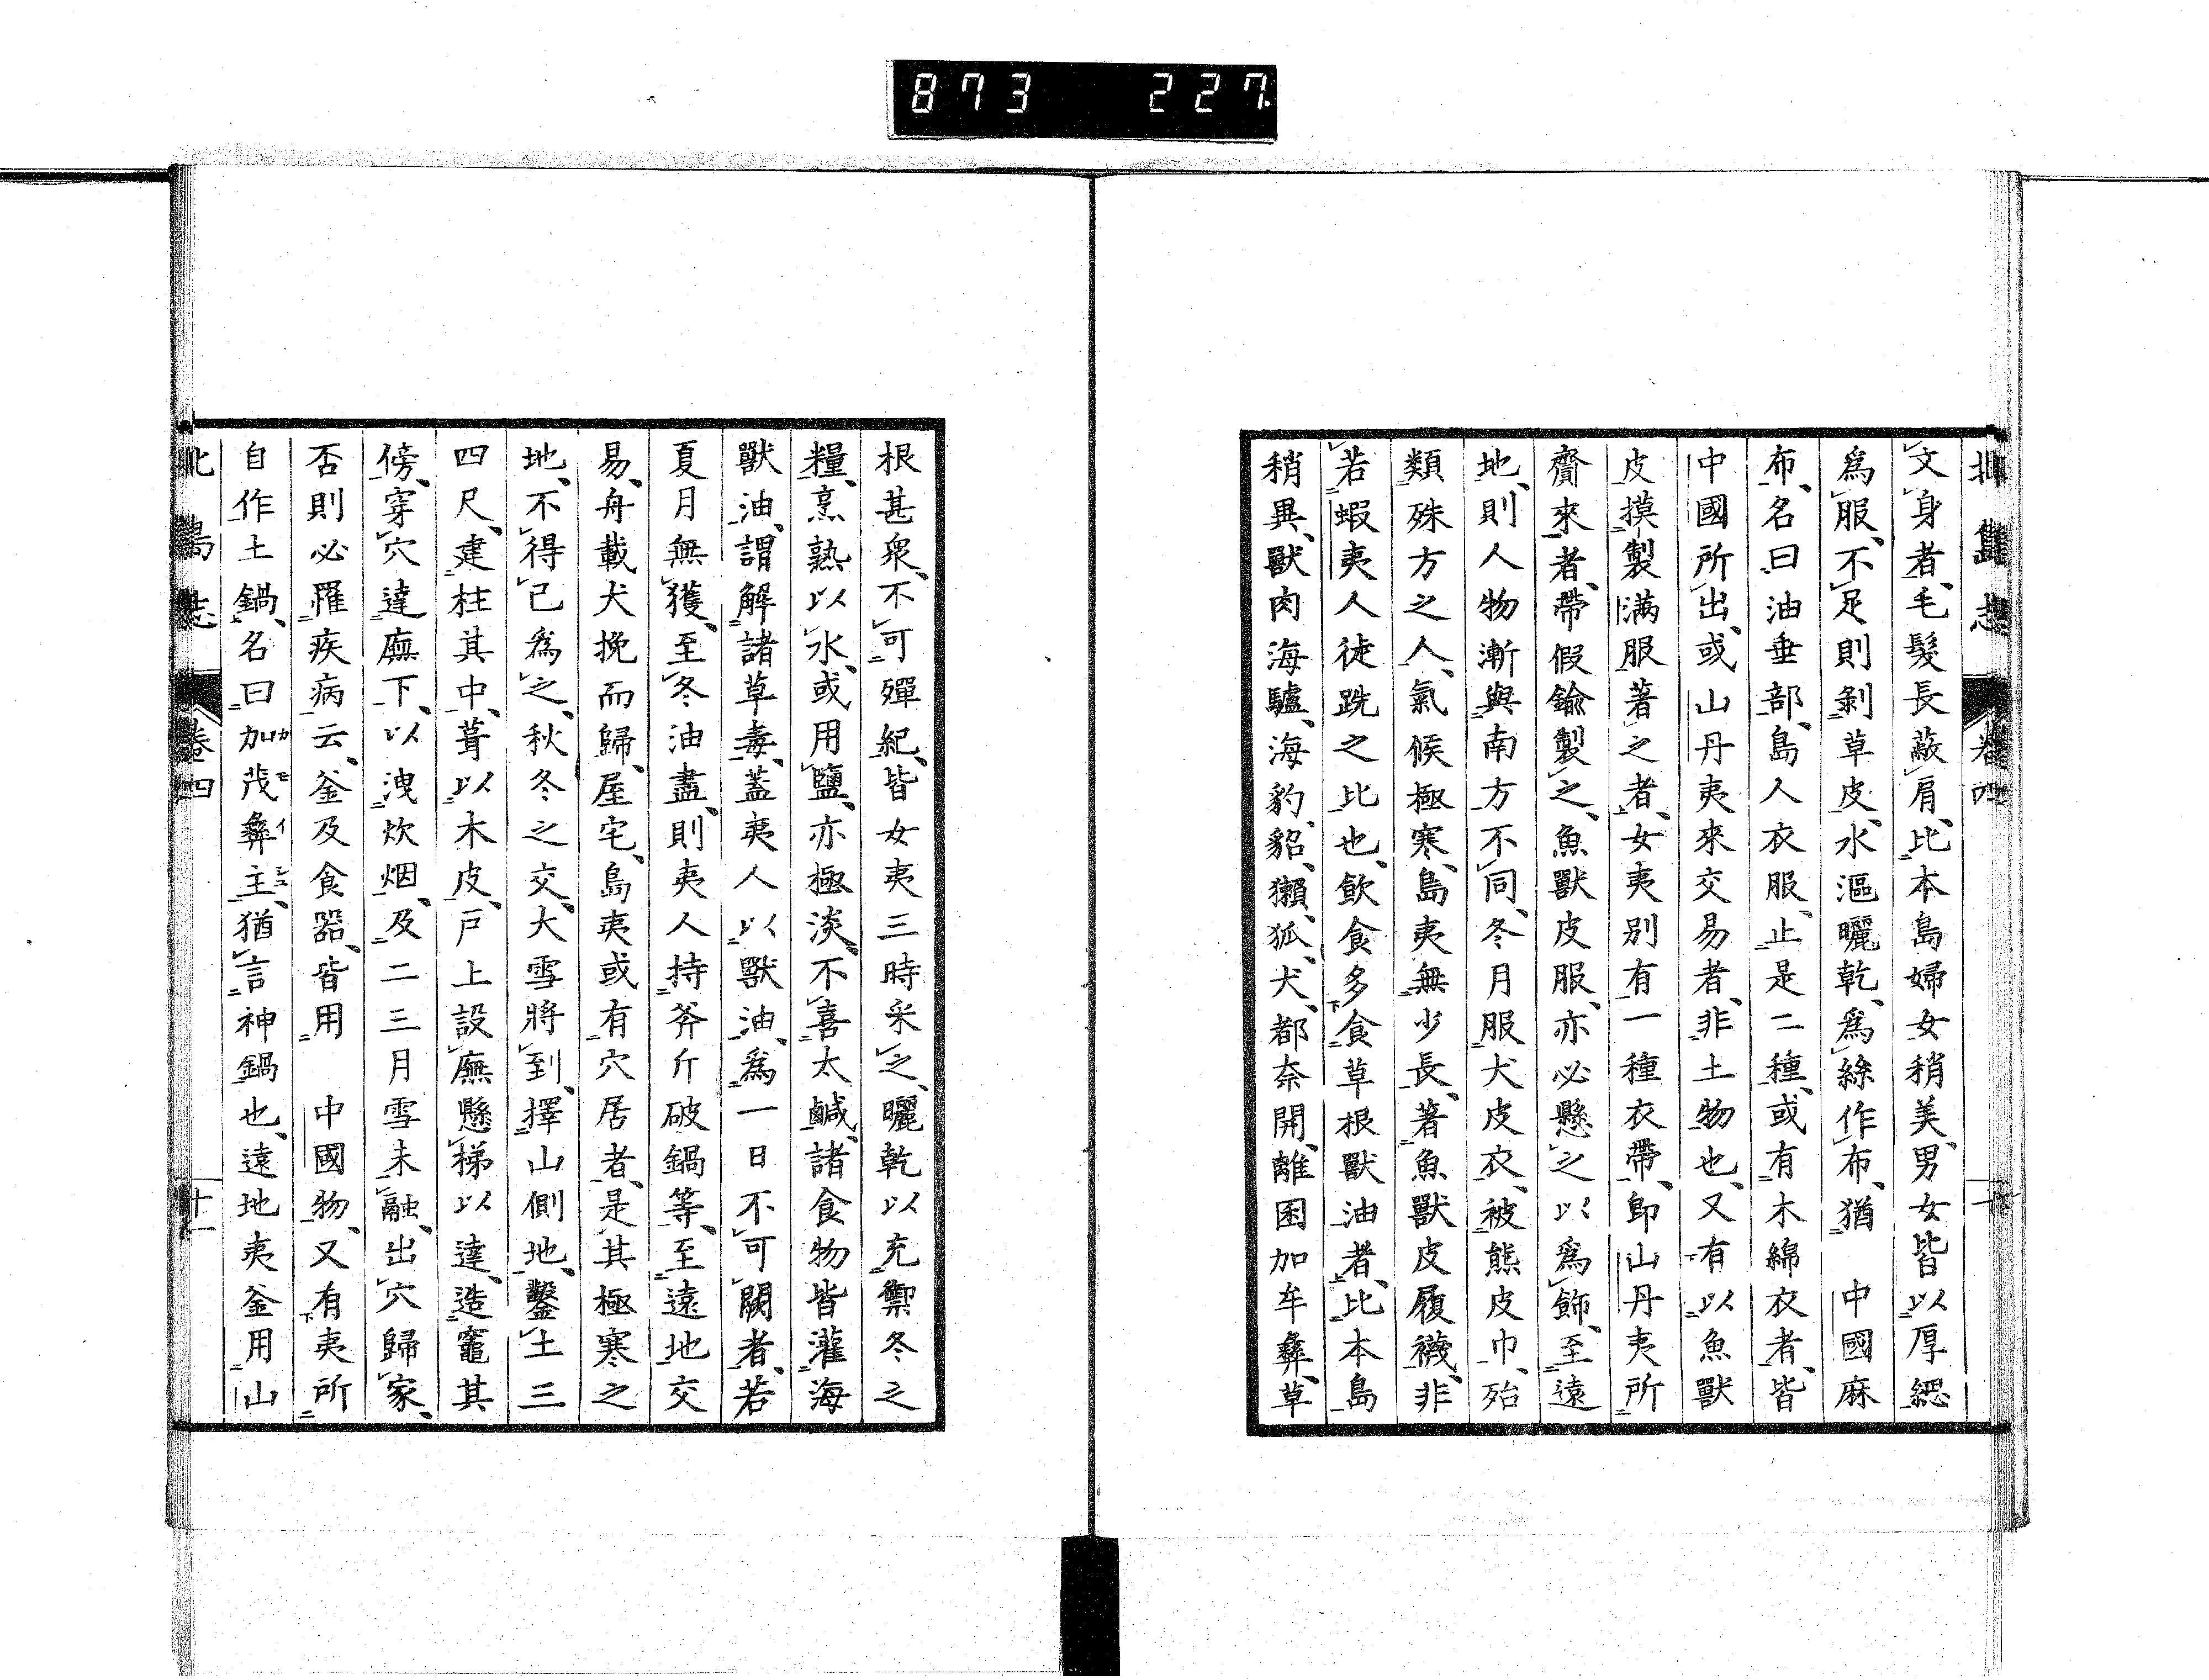 873 227
北島志 卷四
文身者、毛髮長蔽肩、比本島婦女稍美、男女皆以厚緦
爲服、不足則剝草皮、水漚曬乾、爲絲作布、猶 中國麻
布、名曰油垂部、島人衣服、止是二種、或有木綿衣者、皆
中國所出、或山丹夷來交易者、非土物也、又有以魚獸
皮摸製滿服著之者、女夷別有一種衣帶、卽山丹夷所
齎來者、帶假鍮製之、魚獸皮服、亦必懸之以爲飾、至遠
地、則人物漸與南方不同、冬月服犬皮衣、被熊皮巾、殆
類殊方之人、氣候極寒、島夷無少長、著魚獸皮履襪、非
若蝦夷人徒跣之比也、飮食多食草根獸油者、比本島
稍異、獸肉海驢、海豹、貂、獺、狐、犬、都奈開、離困加牟彝、草
根甚衆、不可殫紀、皆女夷三時采之、曬乾以充禦冬之
糧、烹熟以水、或用鹽、亦極淡、不喜太鹹、諸食物皆灌海
獸油、謂解諸草毒、蓋夷人以獸油、爲一日不可闕者、若
夏月無獲、至冬油盡、則夷人持斧斤破鍋等、至遠地交
易、舟載犬挽而歸、屋宅、島夷或有穴居者、是其極寒之
地、不得已爲之、秋冬之交、大雪將到、擇山側地、鑿土三
四尺、建柱其中、葺以木皮、戶上設廡懸梯以達、造竈其
傍、穿穴達廡下、以洩炊烟、及二三月雪未融、出穴歸家、
否則必罹疾病云、釜及食器、皆用 中國物、又有夷所
自作土鍋、名曰加茂彝主、猶言神鍋也、遠地夷釜用山
カモイシユ
北島志 卷四 十一